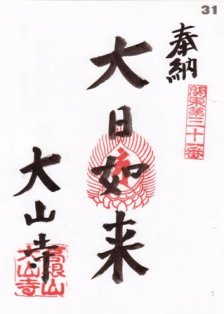 31
奉納
関東第三十一番
大日如来
大山寺
高良山
大山寺